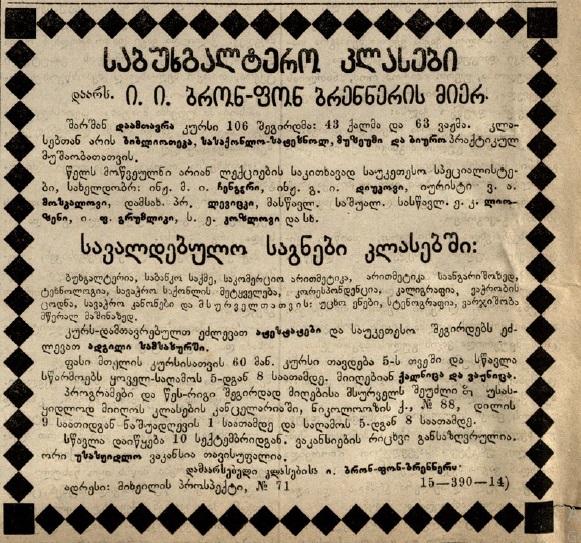 საბუხგალტერო კლასები
დაარს. ი. ი. ბრონ-ფონ ბრენნერის მიერ.
შარშან დაამთავრა კურსი 106 შეგირდმა: 43 ქალმა და 63 ვაჟმა. კლა-
სებთან არის ბიბლიოთეკა, სასაქონლო-სატეხნოლ, მუზეუმი და ბიურო პრაქტიკულ
მუშაობათათვის.
წელს მოწვეულნი არიან ლექციების საკითხავად საუკეთესო სპეციალისტე-
ბი, სახელდობრ: ინჟ. მ. ი. ჩენგერი, ინჟ. გ. ი. დიუკოვი, იურისტი ვ. ა.
მოსკალოვი, დამსახ. პრ. ლევიცკი, მასწავლ. საშუალ. სასწავლ. ე. კ. ლიო-
ზენი, ი. ფ. გრუშლიკი, ს. ე. კოზლოვი და სხ.
სავალდებულო საგნები კლასებში:
ბუხგალტერია, საბანკო საქმე, საკომერციო არითმეტიკა, არითმეტიკა საანგარიშოზედ,
ტეხნოლოგია, სავაჭრო საქონლის მეტყველება, კორესპონდენცია, კალიგრაფია, ვაჭრობის
ცოდნა, სავაჭრო კანონები და მსურველთათვის: უცხო ენები, სტენოგრაფია, ვარჯიშობა
მწერალ მაშინაზედ.
კურს-დამთავრებულთ ეძლევათ ატესტატები და საუკეთესო შეგირდებს ეძ-
ლევათ ადგილი სამსახურში.
ფასი მთელის კურსისათვის 60 მან. კურსი თავდება 5-ს თვეში და სწავლა
სწარმოებს ყოველ-საღამოს 5-დგან 8 საათამდე. მიიღებიან ქალნიცა და ვაჟნიცა.
პროგრამები და წეს-რიგი შეგირდად მიღებისა მსურველს შეუძლიან უსას-
ყიდლოდ მიიღოს კლასების კანცელარიაში, ნიკოლოოზის ქ., № 88, დილის
9 საათიდგან ნაშუადღევის 1 საათამდე და საღამოს 5-დგან 8 საათამდე.
სწავლა დაიწყება 10 სექტემბრიდგან. ვაკანსიების რიცხვი განსაზღვრულია.
ორი უსასყიდლო ვაკანსია თავისუფალია.
დამაარსებელი კლასებისა ი. ბრონ-ფონ-ბრენნერი.
ადრესი: მიხეილის პროსპექტი, № 71 15—390—14)